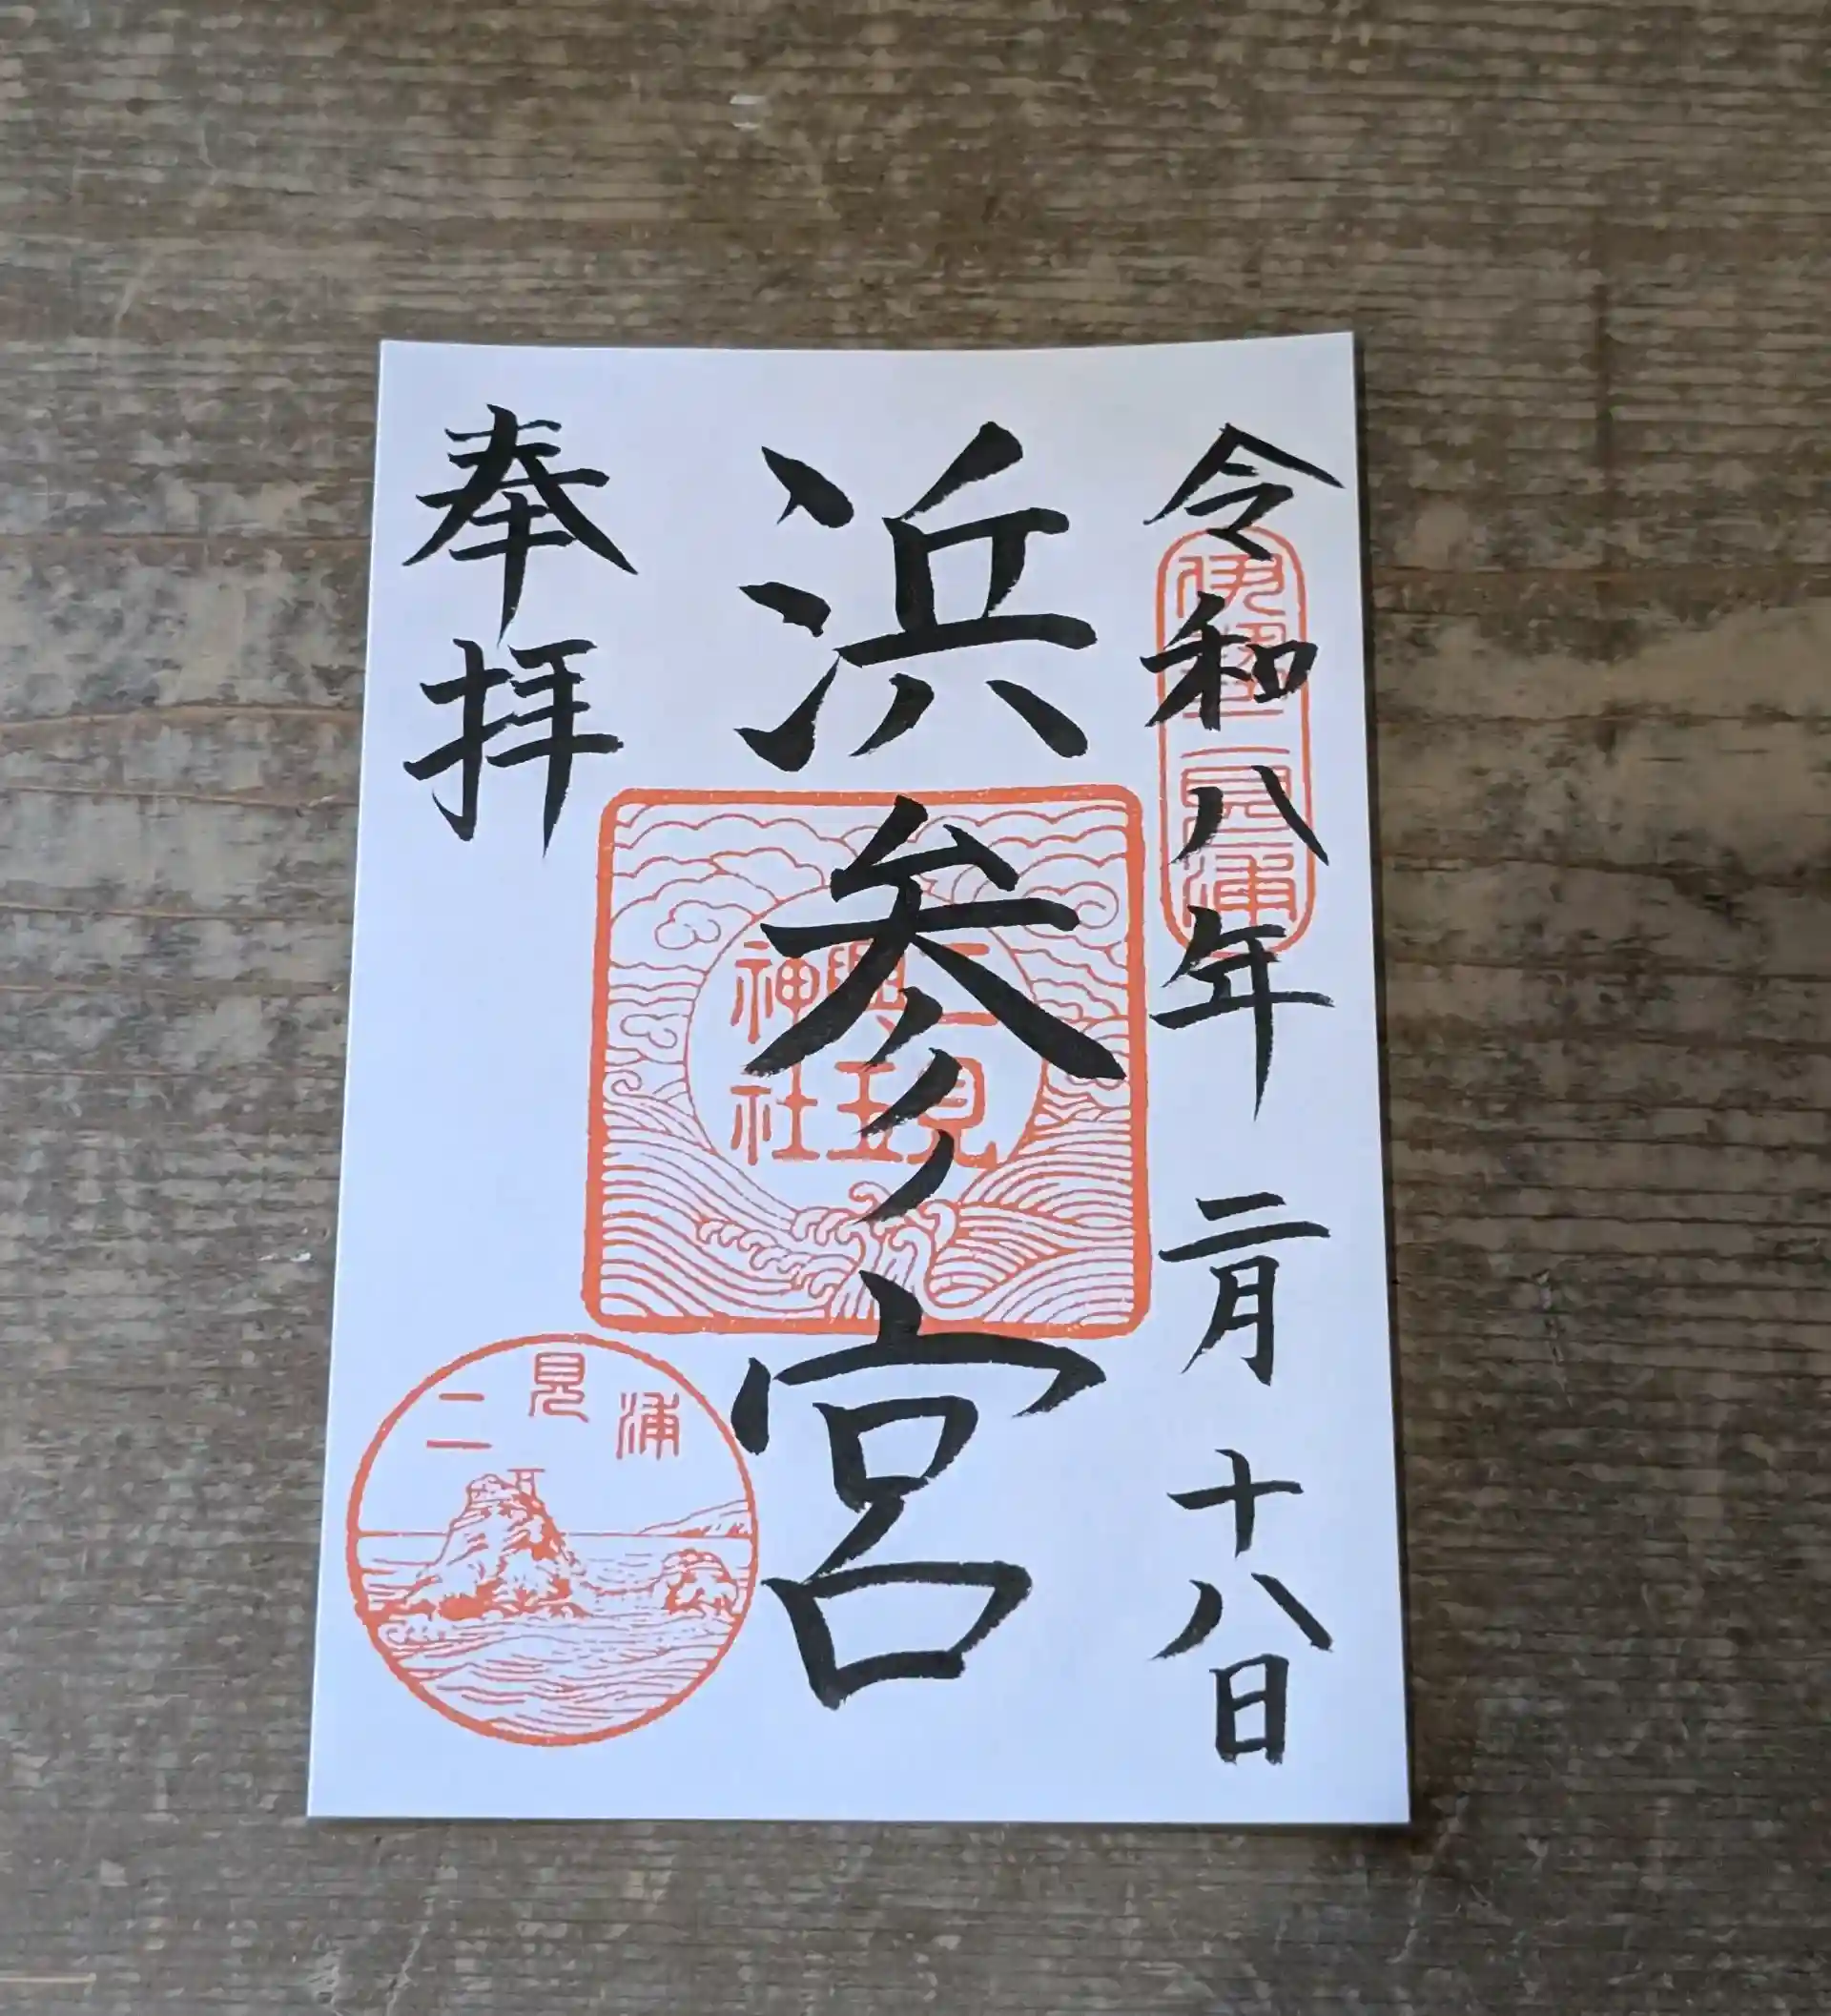 令和八年二月十八日
伊勢二見浦
浜参ノ宮
二見
興玉
神社
奉拝
二見浦